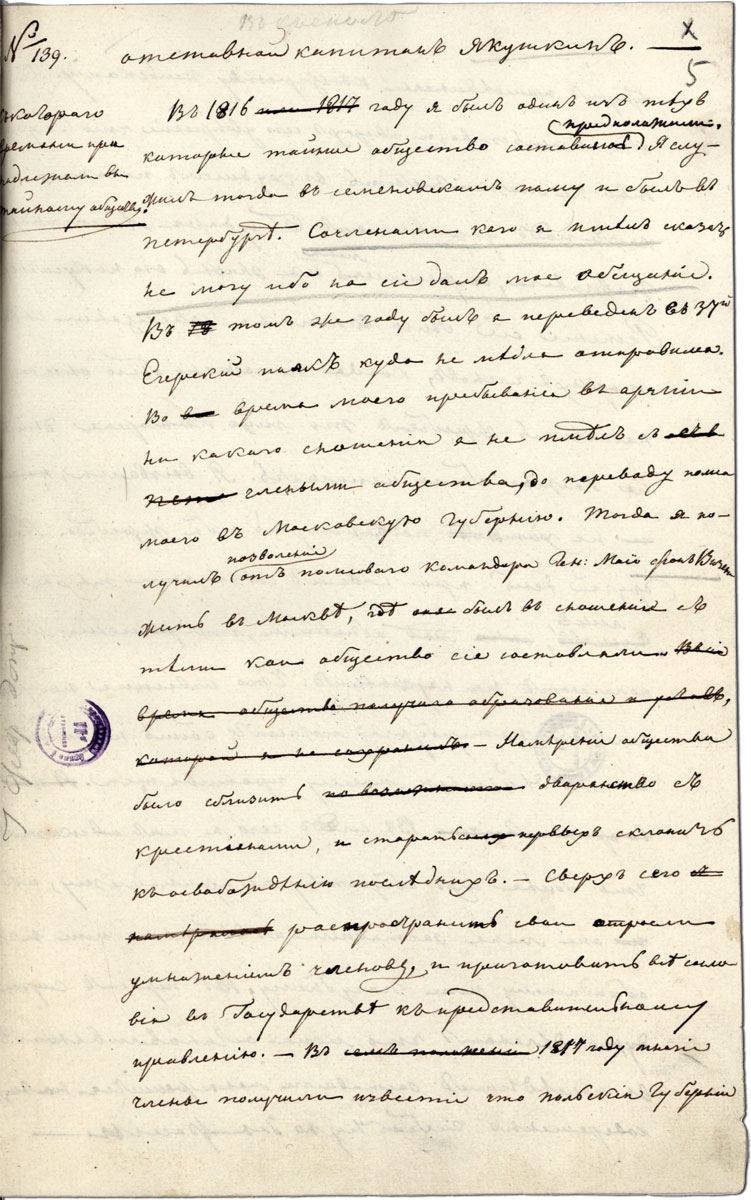 № 139.
отставной капитанъ Якушкинъ.
5
съ котораго
времени при
надлежали къ
тайному обществу.
Въ 1816 или 1817 году я былъ одинъ изъ тѣхъ
предположили.
которые тайное общество составить Я слу-
жилъ тогда въ семеновскомъ полку и былъ въ
петербургѣ. Сочленами кого я имѣлъ сказать
не могу ибо на сіе далъ мое обѣщаніе.
Въ томъ же году былъ я переведенъ въ 37й
Егерскій полкъ куда не мѣдля отправился.
Во время моего пребыванія въ арміи
ни какого сношенія я не имѣлъ съ
члеными общества, до переводу полка
моего въ Московскую Губернію. Тогда я по-
позволеніе
лучилъ отъ полковаго командора Ген: Маіо фонъ
жить въ Москвѣ, гдѣ былъ въ сношеніе съ
тѣми кои общество сіе составляли.
время общество получило образованіе и
которой я не сохранилъ. — Намѣреніе общества
было сблизить по возможности дваранство съ
крестьянами, и стараться первыхъ склонить
къ освабажденію послѣднихъ. — Сверхъ сего
намѣреніе распространить свои отросли
умноженіемъ членовъ, и приготовить всѣ сосло
вія въ Государствѣ къ представительному
правленію. — Въ семъ положеніи 1817 году многіе
члены получили извѣстіе что польскія Губерніи